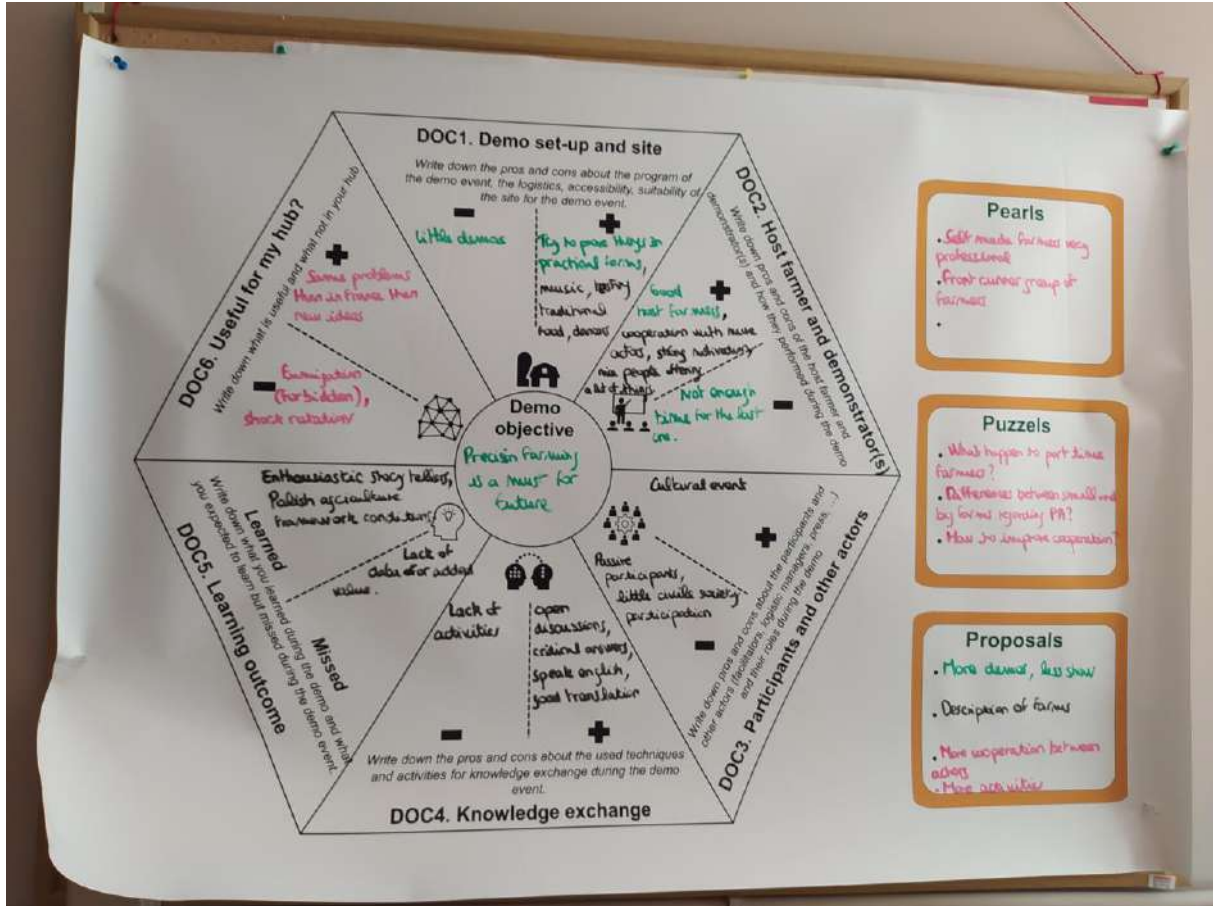 DOC1. Demo set-up and site
Write down the pros and cons about the program of
the demo event, the logistics, accessibility, suitability of
the site for the demo event.
Little demos
Try to prove things in
practical farms,
music, tasting
traditional
food, dancers
DOC2. Host farmer and demonstrator(s)
Write down pros and cons of the host farmer and
demonstrator(s) and how they performed during the demo
Good
host farmers,
cooperation with more
actors, strong motivation,
nice people
a lot of things
Not enough
time for the last
one.
DOC3. Participants and other actors
Write down pros and cons about the participants and
other actors (facilitators, logistic managers, press, ...)
and their roles during the demo
Cultural event
Passive
participants,
little civile society
participation
DOC4. Knowledge exchange
Write down the pros and cons about the used techniques
and activities for knowledge exchange during the demo
event.
Lack of
activities
open
discussions,
critical answers,
speak english,
good translation
DOC5. Learning outcome
Write down what you learned during the demo and what
you expected to learn but missed during the demo event.
Learned
Missed
Enthousiastic story tellers,
Polish agriculture
framework conditions
Lack of
data for added
value.
DOC6. Useful for my hub?
Write down what is useful and what not in your hub
Same problems
than in France then
new ideas
Fumigation
(forbidden),
short rotation
Demo
objective
Precision farming
is a must for
future
Pearls
• Self made farmers very
professional
• Front runner group of
farmers
•
Puzzels
• What happen to part time
farmers?
• Differences between small and
big farms regarding PA?
• How to improve cooperation?
Proposals
• More demos, less show
• Description of farms
• More cooperation between
actors
• More activities